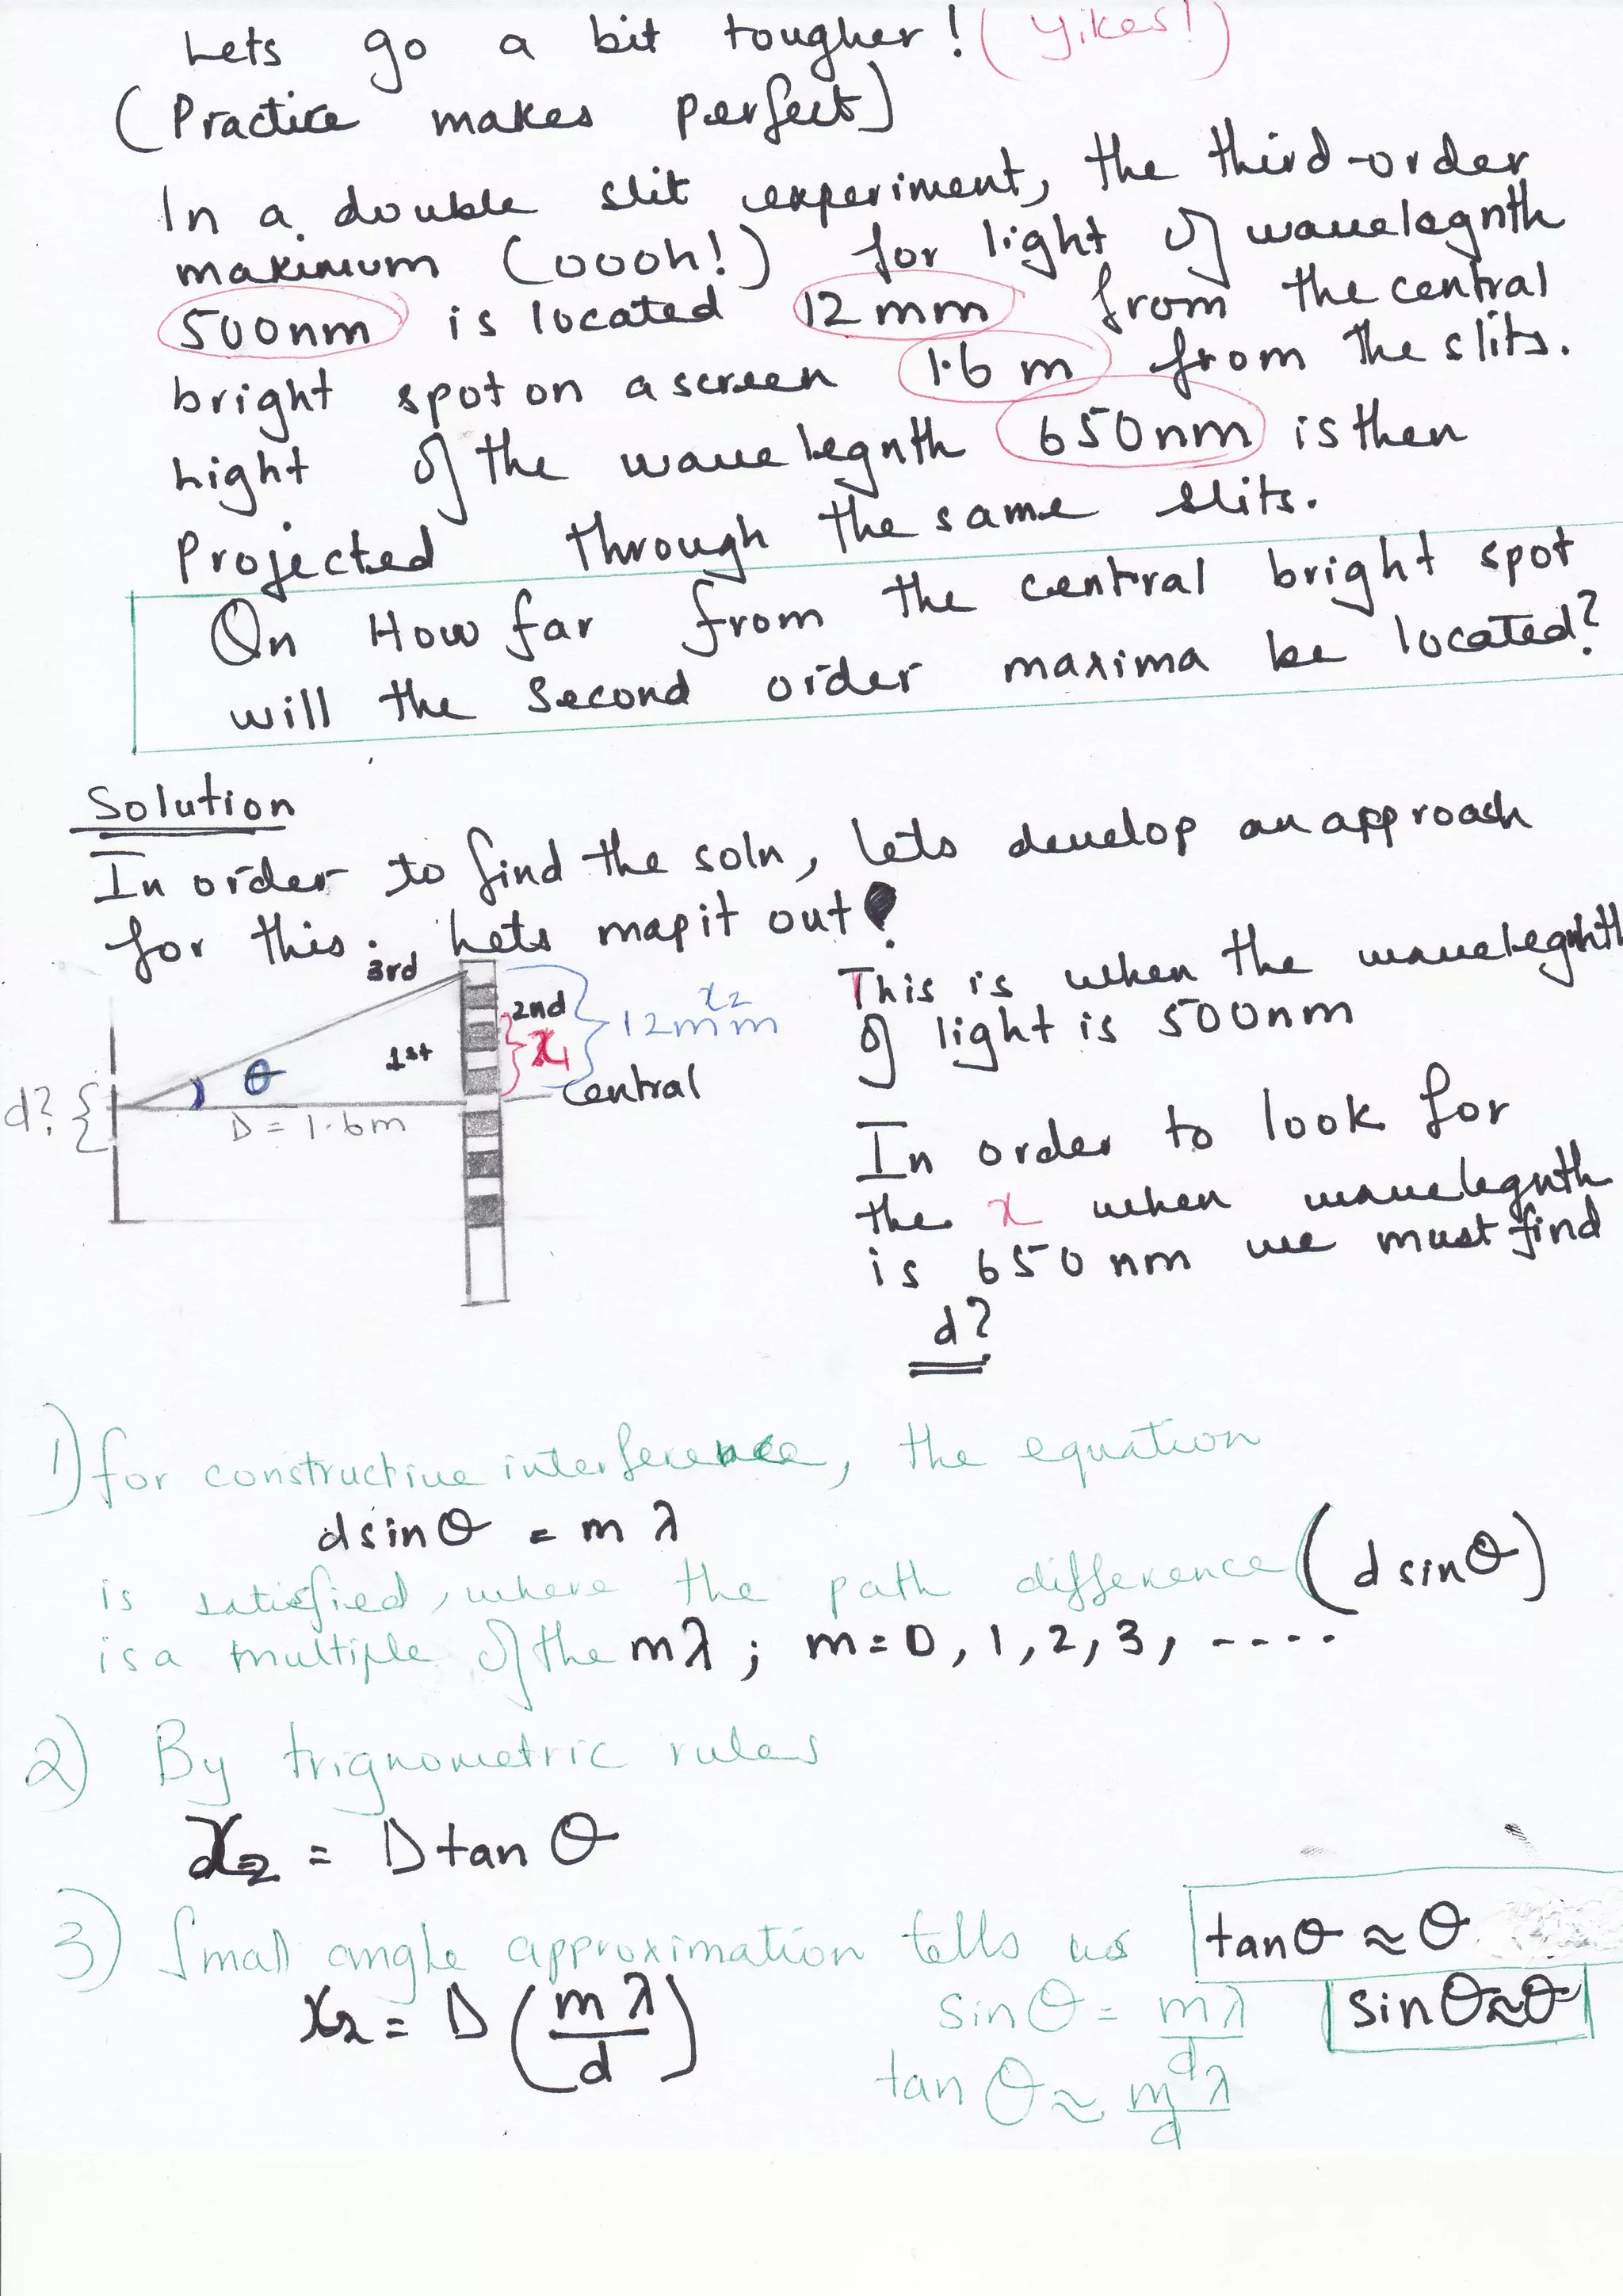 Lets go a bit tougher! (Yikes!)
(Practice makes perfect)
In a double slit experiment, the third-order
maximum (oooh!) for light of wavelegnth
500nm is located 12mm from the central
bright spot on a screen 1.6 m from the slits.
Light of the wavelegnth 650nm is then
Projected through the same slits.
Qn How far from the central bright spot
will the second order maxima be located?
Solution
In order to find the soln, lets develop an approach
for this. Lets map it out!
3rd
2nd
x1
x2
12mm
1st
θ
central
d?
D = 1.6m
This is when the wavelegnth
of light is 500nm
In order to look for
the x when wavelegnth
is 650 nm we must find
d?
1) for constructive interference, the equation
dsinθ = mλ
is satisfied, where the path difference (dsinθ)
is a multiple of the mλ; m=0, 1, 2, 3, ----
2) By trignometric rules
x2 = D tan θ
3) Small angle approximation tells us tanθ ≈ θ
x2 = D (mλ/d) sinθ = mλ/d sinθ≈θ
tan θ ≈ mλ/d